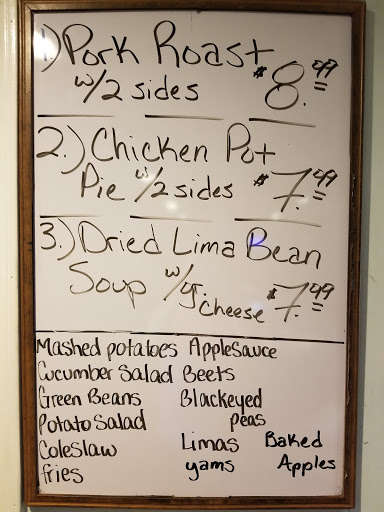 1) Pork Roast
w/2 sides $8.49
2.) Chicken Pot
Pie w/2 sides $7.49
3.) Dried Lima Bean
Soup w/gr. cheese $7.49
Mashed potatoes Applesauce
Cucumber Salad Beets
Green Beans Blackeyed
Potato Salad peas
Coleslaw Limas Baked
fries yams Apples